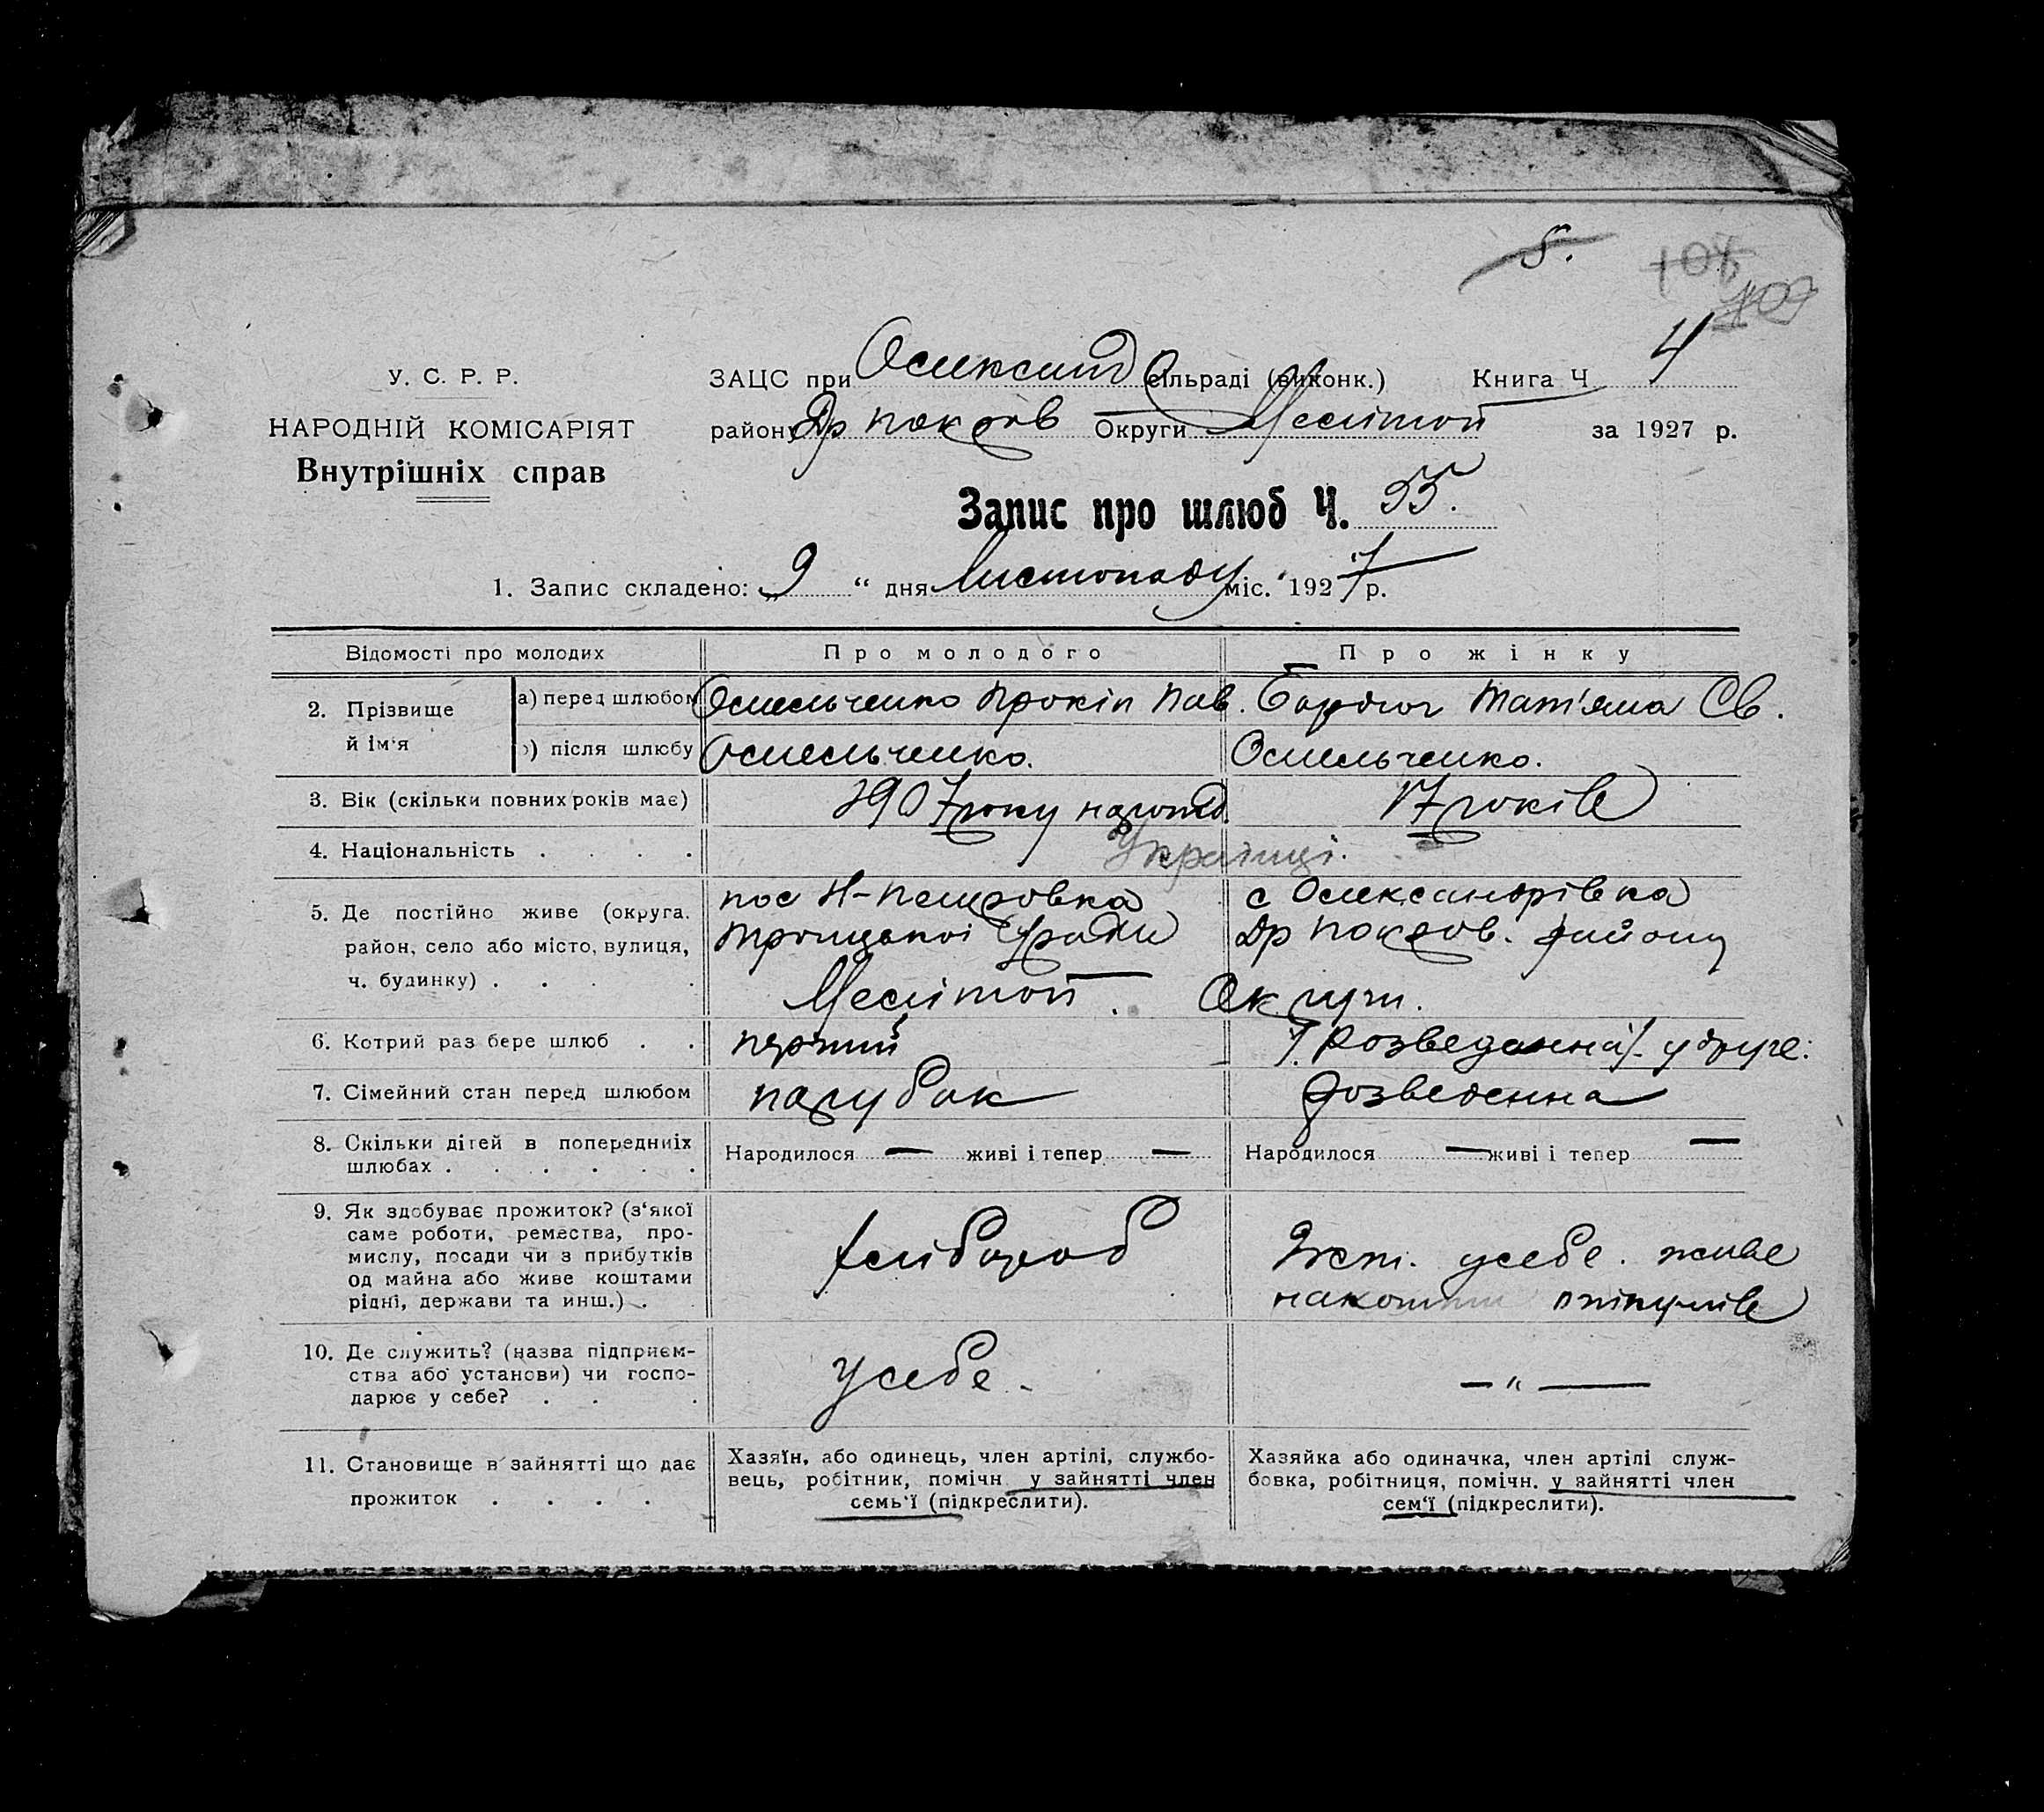 5.
108
107
У. С. Р. Р.
НАРОДНІЙ КОМІСАРІЯТ
Внутрішніх справ
ЗАЦС при Олександ сільраді (виконк.) Книга Ч 4
району Др Покров Округи Меліпоп за 1927 р.
Запис про шлюб Ч. 55.
1. Запис складено: „9“ дня Листопаду міс. 1927 р.
Відомості про молодих Про молодого Про жінку
2. Прізвище й ім'я
а) перед шлюбом Омельченко Прокіп Пав. Тат'яна Св.
б) після шлюбу Омельченко. Омельченко.
3. Вік (скільки повних років має) 1907 року народ. 17 років
4. Національність . . . . Українці.
5. Де постійно живе (округа, район, село або місто, вулиця, ч. будинку) . . . .
пос Н-Петровка с Олександрівка
Троицької С/ради Др Покров. району
Меліпоп. Округи.
6. Котрий раз бере шлюб . . перший /Розведенна/. удруге:
7. Сімейний стан перед шлюбом парубок розведенна
8. Скільки дітей в попередніх шлюбах . . . . . .
Народилося — живі і тепер — Народилося — живі і тепер —
9. Як здобуває прожиток? (з'якої
саме роботи, ремества, про-
мислу, посади чи з прибутків
од майна або живе коштами
рідні, держави та инш.) .
хлібороб
усебе. живе
на кошти
10. Де служить? (назва підприєм-
ства або установи) чи госпо-
дарює у себе? . . .
усебе. — „ —
11. Становище в занятті що дає
прожиток . . . .
Хазяїн, або одинець, член артілі, службо-
вець, робітник, помічн. у зайнятті член
семь'ї (підкреслити).
Хазяйка або одиначка, член артілі служ-
бовка, робітниця, помічн. у зайнятті член
сем'ї (підкреслити).